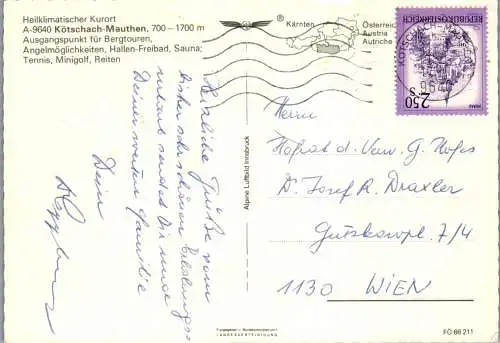 Heilklimatischer Kurort
A-9640 Kötschach-Mauthen, 700 - 1700 m
Ausgangspunkt für Bergtouren,
Angelmöglichkeiten, Hallen-Freibad, Sauna;
Tennis, Minigolf, Reiten
®
Kärnten
Österreich
Austria
Autriche
REPUBLIK ÖSTERREICH
2.50
S
Herrn
Hofrat d. Verw. G. Hofes
Dr. Josef R. Draxler
7/4
1130 WIEN
Herzliche Grüße vom
bisher sehr schönen Erholungs-
urlaub sendet Dir und
Deiner werten Familie
Dein
Alpine Luftbild Innsbruck
FÖ 66 211